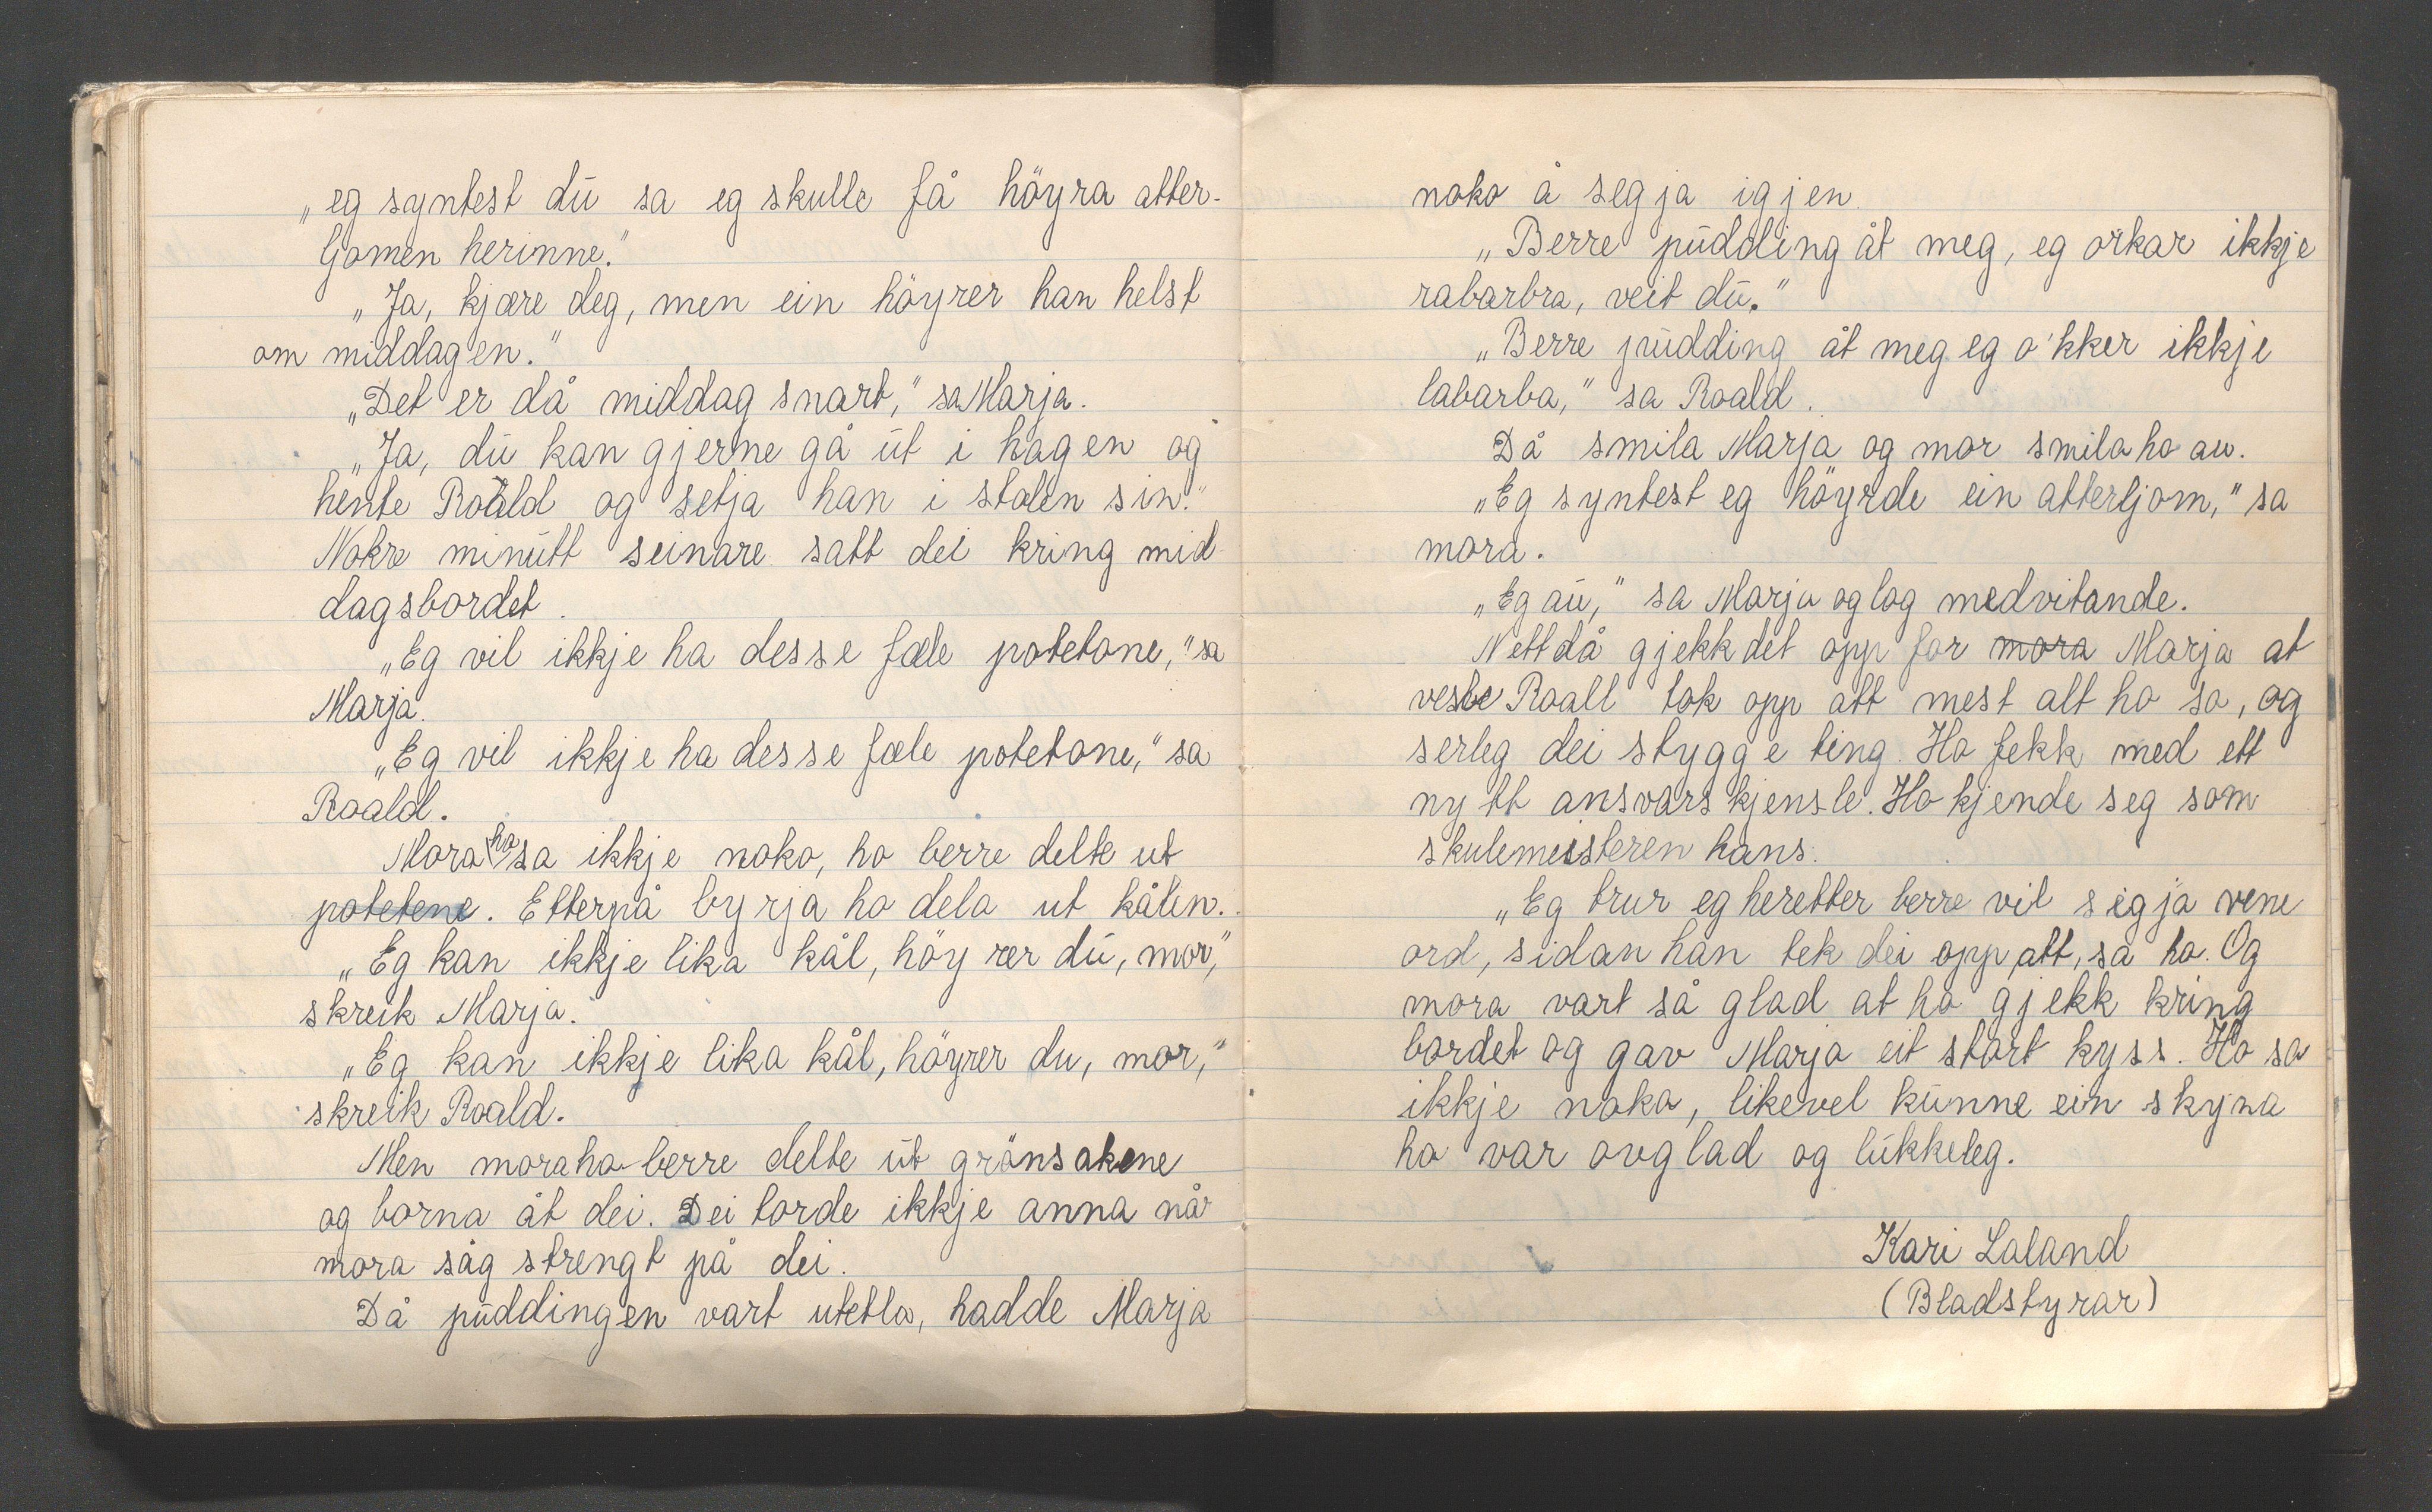 „eg syntest du sa eg skulle få höyra atter-
ljomen herinne."
„Ja, kjære deg, men ein höyrer han helst
om middagen."
„Det er då middag snart," sa Marja.
„Ja, du kan gjerne gå ut i hagen og
hente Roald og setja han i stolen sin."
Nokre minutt seinare satt dei kring mid-
dagsbordet.
„Eg vil ikkje ha desse fæle potetone," sa
Marja.
„Eg vil ikkje ha desse fæle potetone," sa
Roald.
Mora ho sa ikkje noko, ho berre delte ut
potetene. Etterpå byrja ho dela ut kålen.
„Eg kan ikkje lika kål, höyrer du, mor,"
skreik Marja.
„Eg kan ikkje lika kål, höyrer du, mor,"
skreik Roald.
Men mora ho berre delte ut grönsakene
og borna åt dei. Dei torde ikkje anna når
mora såg strengt på dei.
Då puddingen vart utetla, hadde Marja
noko å segja igjen.
„Berre pudding åt meg, eg orkar ikkje
rabarbra, veit du."
„Berre pudding åt meg eg o'kker ikkje
labarba," sa Roald.
Då smila Marja og mor smila ho au.
„Eg syntest eg höyrde ein atterljom," sa
mora.
„Eg au," sa Marja og log medvitande.
Nett då gjekk det opp for mora Marja at
vesle Roall tok opp att mest alt ho sa, og
serleg dei stygge ting. Ho fekk med ett
nytt ansvarskjensle. Ho kjende seg som
skulemeisteren hans.
„Eg trur eg heretter berre vil sigja vene
ord, sidan han tek dei opp att, sa ho. Og
mora vart så glad at ho gjekk kring
bordet og gav Marja eit stort kyss. Ho sa
ikkje noko, likevel kunne ein skyna
ho var ovglad og lukkeleg.
Kari Laland
(Bladstyrar)